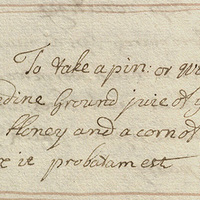 To take a pin: or
dine Ground juice of
Honey and a corn of
it probatum est